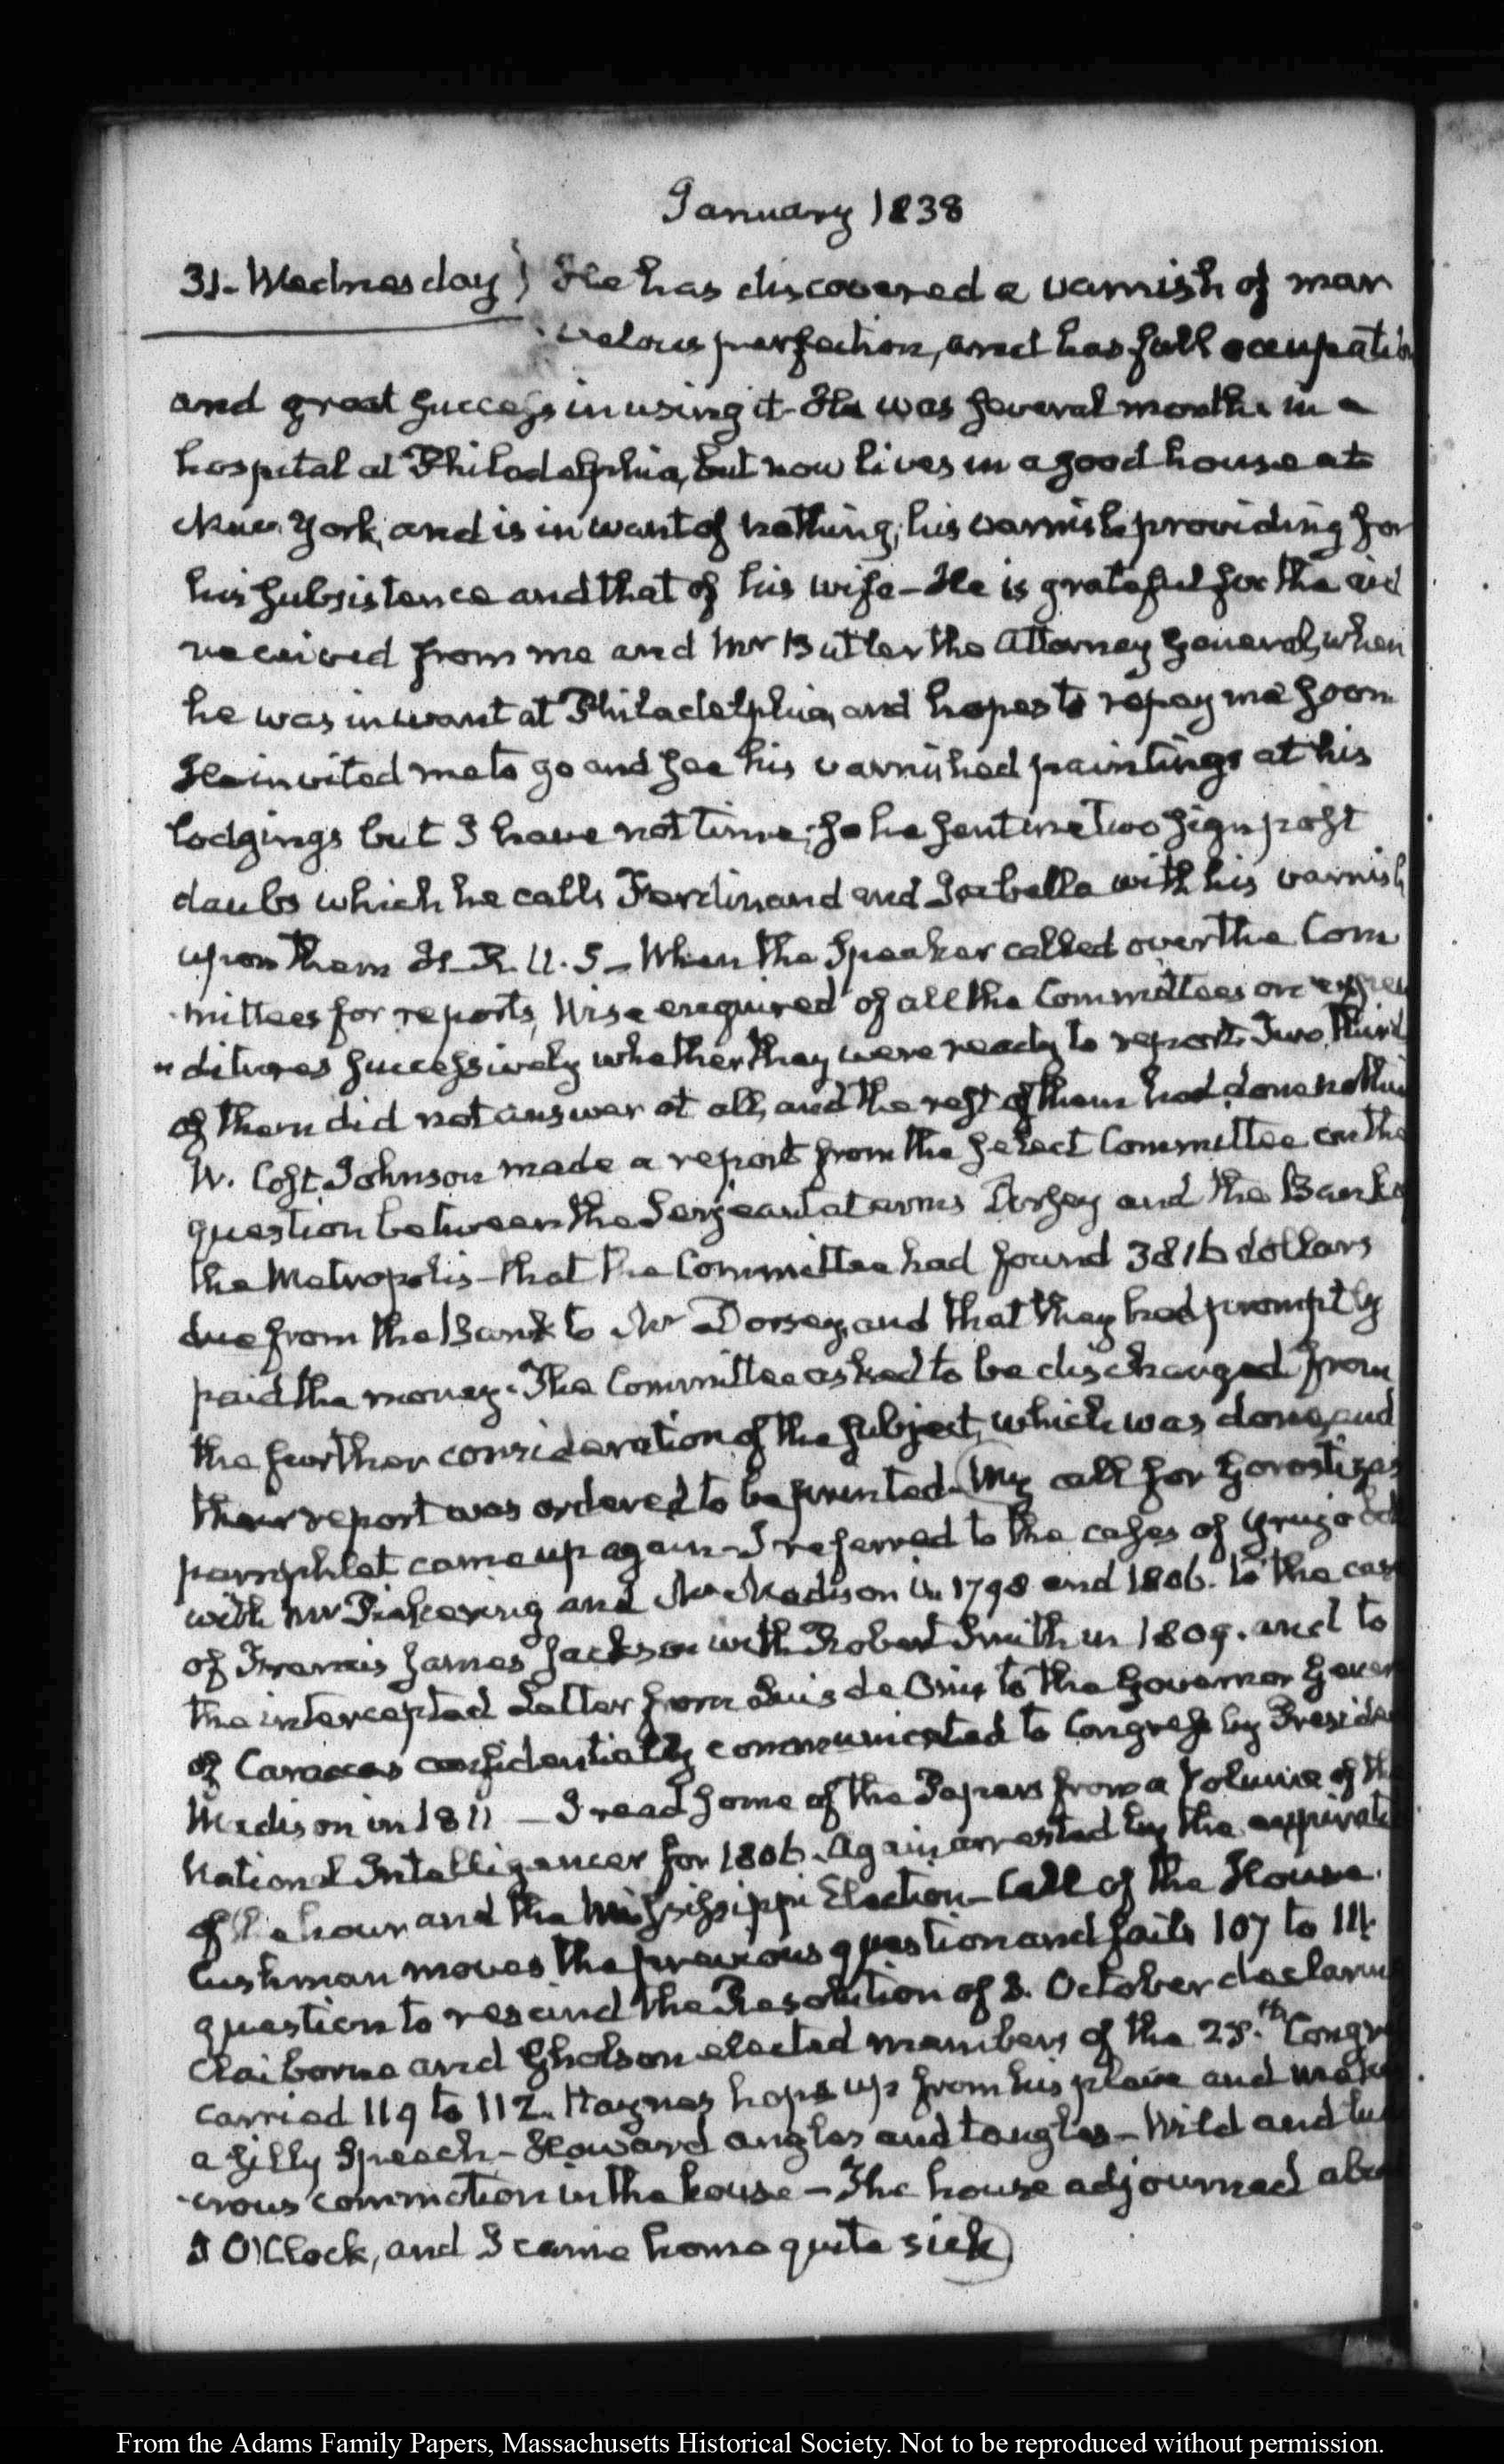 January 1838
31. Wednesday} He has discovered a varnish of mar
velous perfection, and has full occupatio
and great success in using it - He was several months in a
hospital at Philadelphia, but now lives in a good house at
New York, and is in want of nothing; his varnish providing for
his subsistence and that of his wife - He is grateful for the aid
received from me and Mr Butler the Attorney General, when
he was in want at Philadelphia, and hopes to repay me soon
He invited me to go and see his varnished paintings at his
lodgings but I have not time; so he sent me two sign post
daubs which he calls Ferdinand and Isabella with his varnish
upon them H.R.U.S - When the Speaker called over the Com
mittees for reports, Wise enquired of all the Committees on expen
ditures successively whether they were ready to report. Two third
of them did not answer at all, and the rest of them had done nothin
W. Cost Johnson made a report from the select Committee on the
question between the Serjeant at arms Dorsey and the Bank
the Metropolis - that the Committee had found 3816 dollars
due from the Bank to Mr Dorsey, and that they had promptly
paid the money. The Committee asked to be discharged from
the further consideration of the subject, which was done, and
their report was ordered to be printed. (My call for Gorostizas
pamphlet came up again - I referred to the cases of Yrujo
with Mr Pickering and Mr Madison in 1798 and 1806. to the case
of Francis James Jackson with Robert Smith in 1809. and to
the intercepted Letter from Luis de Onis to the Governor Gener
of Caraccas confidentially communicated to Congress by Preside
Madison in 1811 - I read some of the Papers from a Volume of th
National Intelligencer for 1806. Again arrested by the expirati
of the hour and the Mississippi Election - Call of the House.
Cushman moves the previous question and fails 107 to 111
question to rescind the Resolution of 3. October declarin
Claiborne and Gholson elected members of the 25.th Congr
carried 119 to 112. Haynes hops up from his place and make
a silly Speech - Howard angles and tangles - Wild and lu
crous commotion in the house - The house adjourned abo
5 O'Clock, and I came home quite sick)
From the Adams Family Papers, Massachusetts Historical Society. Not to be reproduced without permission.